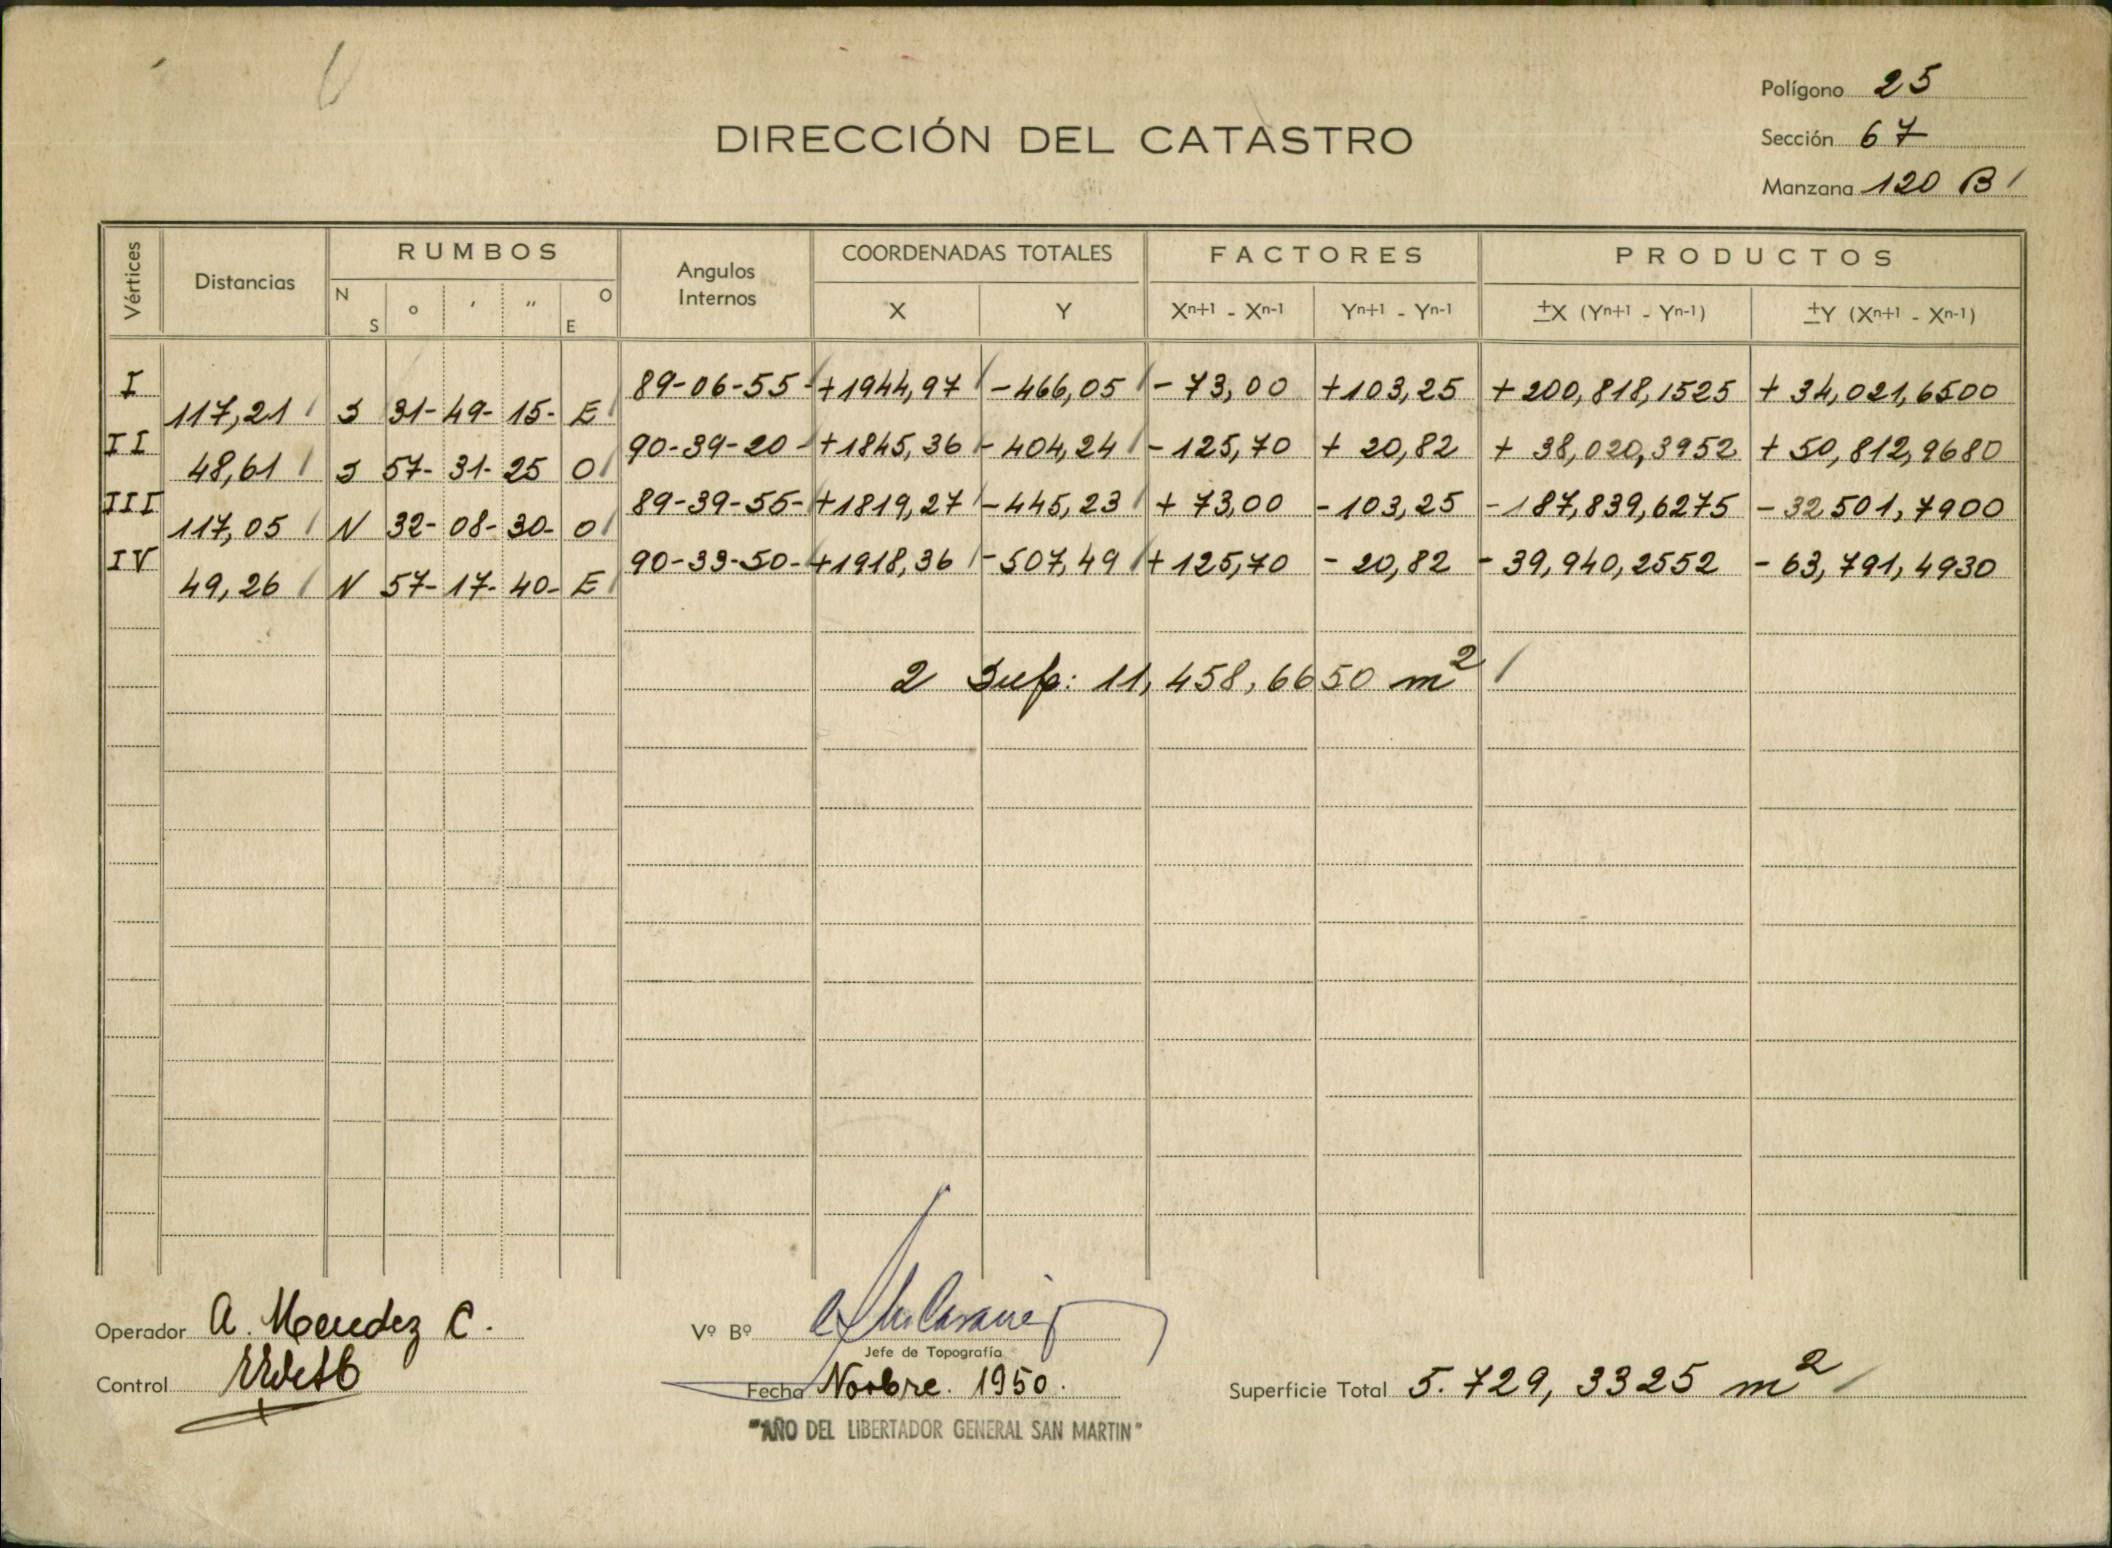 Polígono 25
DIRECCIÓN DEL CATASTRO
Sección 67
Manzana 120 B
Vértices Distancias RUMBOS Angulos Internos COORDENADAS TOTALES FACTORES PRODUCTOS
N S ° ' " O E X Y Xn+1 - Xn-1 Yn+1 - Yn-1 ±X (Yn+1 - Yn-1) ±Y (Xn+1 - Xn-1)
I 89-06-55- +1944,97 -466,05 -73,00 +103,25 +200,818,1525 +34,021,6500
117,21 S 31- 49- 15- E
II 90-39-20- +1845,36 -404,24 -125,70 +20,82 +38,020,3952 +50,812,9680
48,61 S 57- 31- 25 O
III 89-39-55- +1819,27 -445,23 +73,00 -103,25 -187,839,6275 -32,501,7900
117,05 N 32- 08- 30- O
IV 90-33-50- +1918,36 -507,49 +125,70 -20,82 -39,940,2552 -63,791,4930
49,26 N 57- 17- 40- E
2 Sup: 11,458,6650 m²
Operador A. Mendez C.
Vº Bº
Jefe de Topografía
Control
Fecha Novbre. 1950.
Superficie Total 5.729,3325 m²
"AÑO DEL LIBERTADOR GENERAL SAN MARTIN"